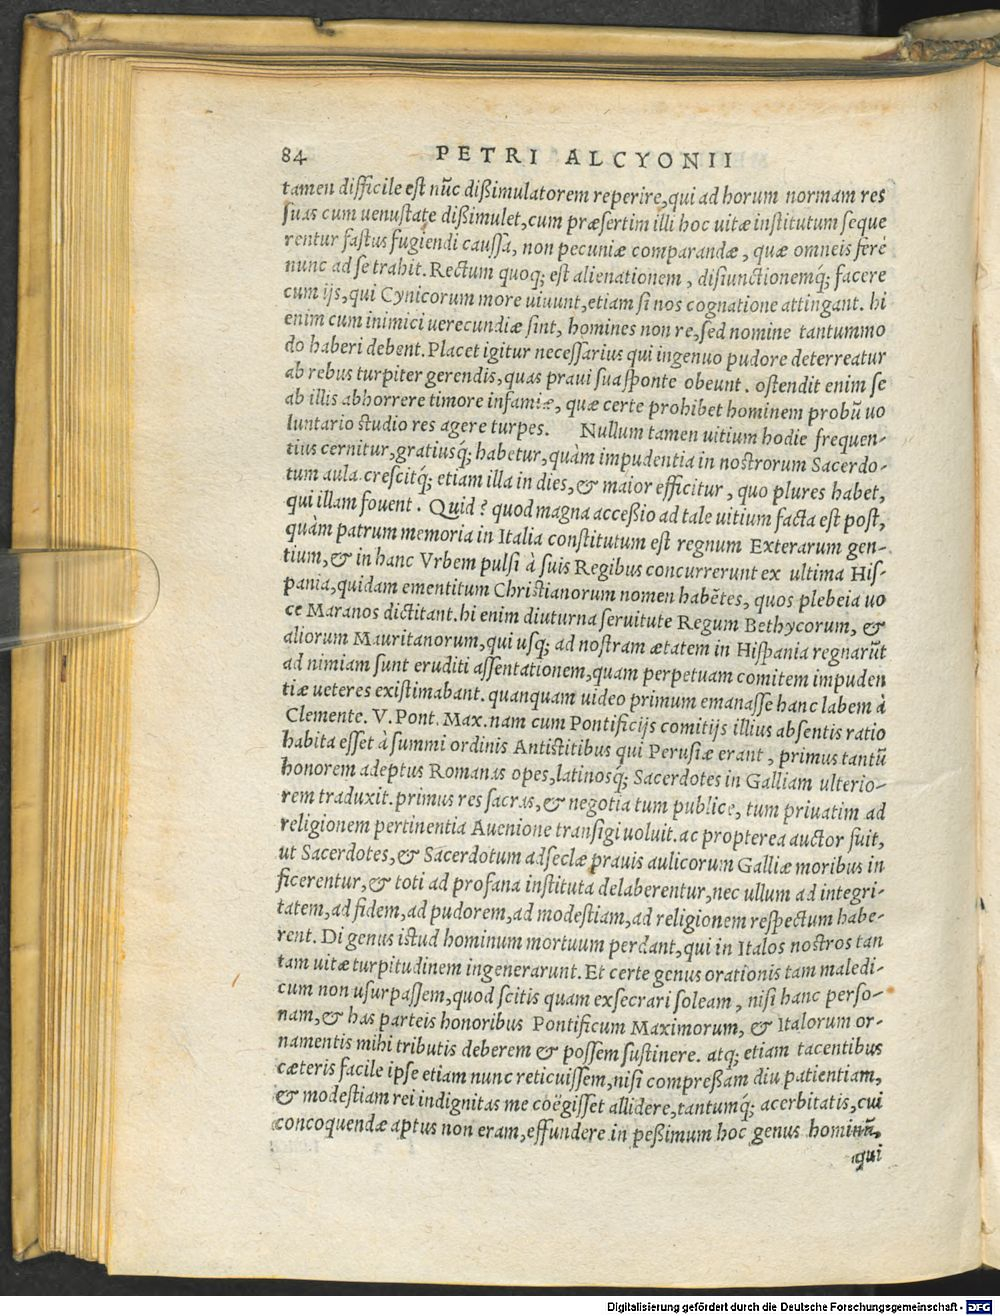 84 PETRI ALCYONII
tamen difficile est nũc dißimulatorem reperire, qui ad horum normam res
suas cum uenustate dißimulet, cum præsertim illi hoc uitæ institutum seque
rentur fastus fugiendi caussa, non pecuniæ comparandæ, quæ omneis ferè
nunc ad se trahit. Rectum quoq; est alienationem, disiunctionemq́; facere
cum ijs, qui Cynicorum more uiuunt, etiam si nos cognatione attingant. hi
enim cum inimici uerecundiæ sint, homines non re, sed nomine tantummo
do haberi debent. Placet igitur necessarius qui ingenuo pudore deterreatur
ab rebus turpiter gerendis, quas praui sua sponte obeunt. ostendit enim se
ab illis abhorrere timore infamiæ, quæ certe prohibet hominem probũ uo
luntario studio res agere turpes. Nullum tamen uitium hodie frequen-
tius cernitur, gratiusq́; habetur, quàm impudentia in nostrorum Sacerdo-
tum aula. crescitq́; etiam illa in dies, & maior efficitur, quo plures habet,
qui illam fouent. Quid? quod magna acceßio ad tale uitium facta est post,
quàm patrum memoria in Italia constitutum est regnum Exterarum gen-
tium, & in hanc Vrbem pulsi à suis Regibus concurrerunt ex ultima His-
pania, quidam ementitum Christianorum nomen habẽtes, quos plebeia uo
ce Maranos dictitant. hi enim diuturna seruitute Regum Bethycorum, &
aliorum Mauritanorum, qui usq; ad nostram ætatem in Hispania regnarũt
ad nimiam sunt eruditi assentationem, quam perpetuam comitem impuden
tiæ ueteres existimabant. quanquam uideo primum emanasse hanc labem à
Clemente. V. Pont. Max. nam cum Pontificijs comitijs illius absentis ratio
habita esset à summi ordinis Antistitibus qui Perusiæ erant, primus tantũ
honorem adeptus Romanas opes, latinosq́; Sacerdotes in Galliam ulterio-
rem traduxit. primus res sacras, & negotia tum publice, tum priuatim ad
religionem pertinentia Auenione transigi uoluit. ac propterea auctor fuit,
ut Sacerdotes, & Sacerdotum adseclæ prauis aulicorum Galliæ moribus in
ficerentur, & toti ad profana instituta delaberentur, nec ullum ad integri-
tatem, ad fidem, ad pudorem, ad modestiam, ad religionem respectum habe-
rent. Di genus istud hominum mortuum perdant, qui in Italos nostros tan
tam uitæ turpitudinem ingenerarunt. Et certe genus orationis tam maledi-
cum non usurpassem, quod scitis quam exsecrari soleam, nisi hanc perso-
nam, & has parteis honoribus Pontificum Maximorum, & Italorum or-
namentis mihi tributis deberem & possem sustinere. atq; etiam tacentibus
cæteris facile ipse etiam nunc reticuissem, nisi compreßam diu patientiam,
& modestiam rei indignitas me coëgisset allidere, tantumq́; acerbitatis, cui
concoquendæ aptus non eram, effundere in peßimum hoc genus hominũ,
qui
Digitalisierung gefördert durch die Deutsche Forschungsgemeinschaft - DFG